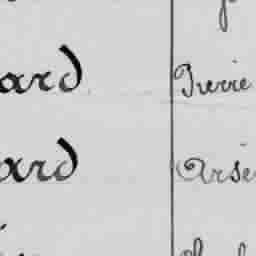 ard Pierre
ard Arsè